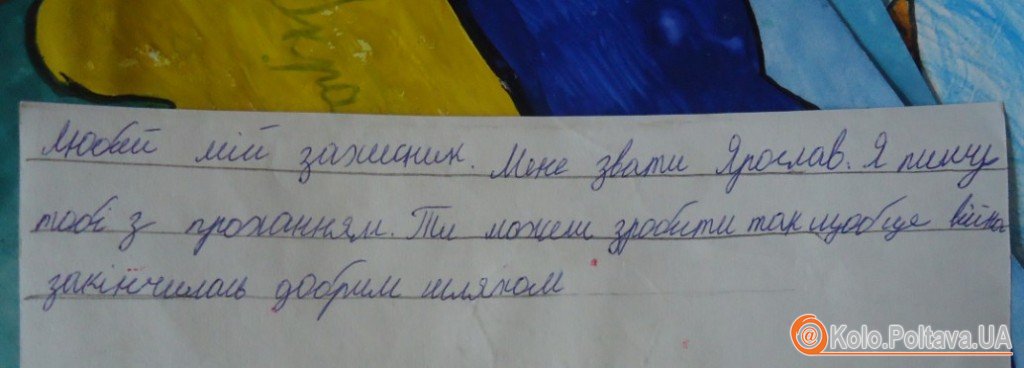 Укра
Любий мій захисник. Мене звати Ярослав. Я пишу
тобі з проханням. Ти можеш зробити так щоб ця війна
закінчилась добрим шляхом
@Kolo.Poltava.UA